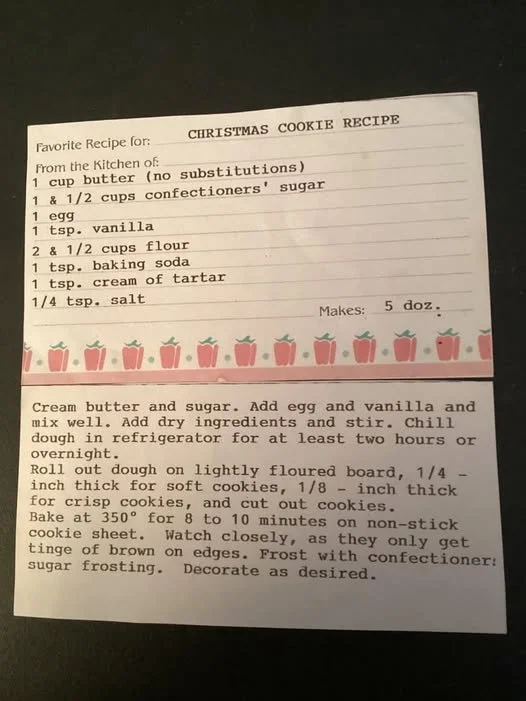 Favorite Recipe for: CHRISTMAS COOKIE RECIPE
From the Kitchen of:
1 cup butter (no substitutions)
1 & 1/2 cups confectioners' sugar
1 egg
1 tsp. vanilla
2 & 1/2 cups flour
1 tsp. baking soda
1 tsp. cream of tartar
1/4 tsp. salt
Makes: 5 doz.
Cream butter and sugar. Add egg and vanilla and
mix well. Add dry ingredients and stir. Chill
dough in refrigerator for at least two hours or
overnight.
Roll out dough on lightly floured board, 1/4 -
inch thick for soft cookies, 1/8 - inch thick
for crisp cookies, and cut out cookies.
Bake at 350° for 8 to 10 minutes on non-stick
cookie sheet. Watch closely, as they only get
tinge of brown on edges. Frost with confectioner:
sugar frosting. Decorate as desired.